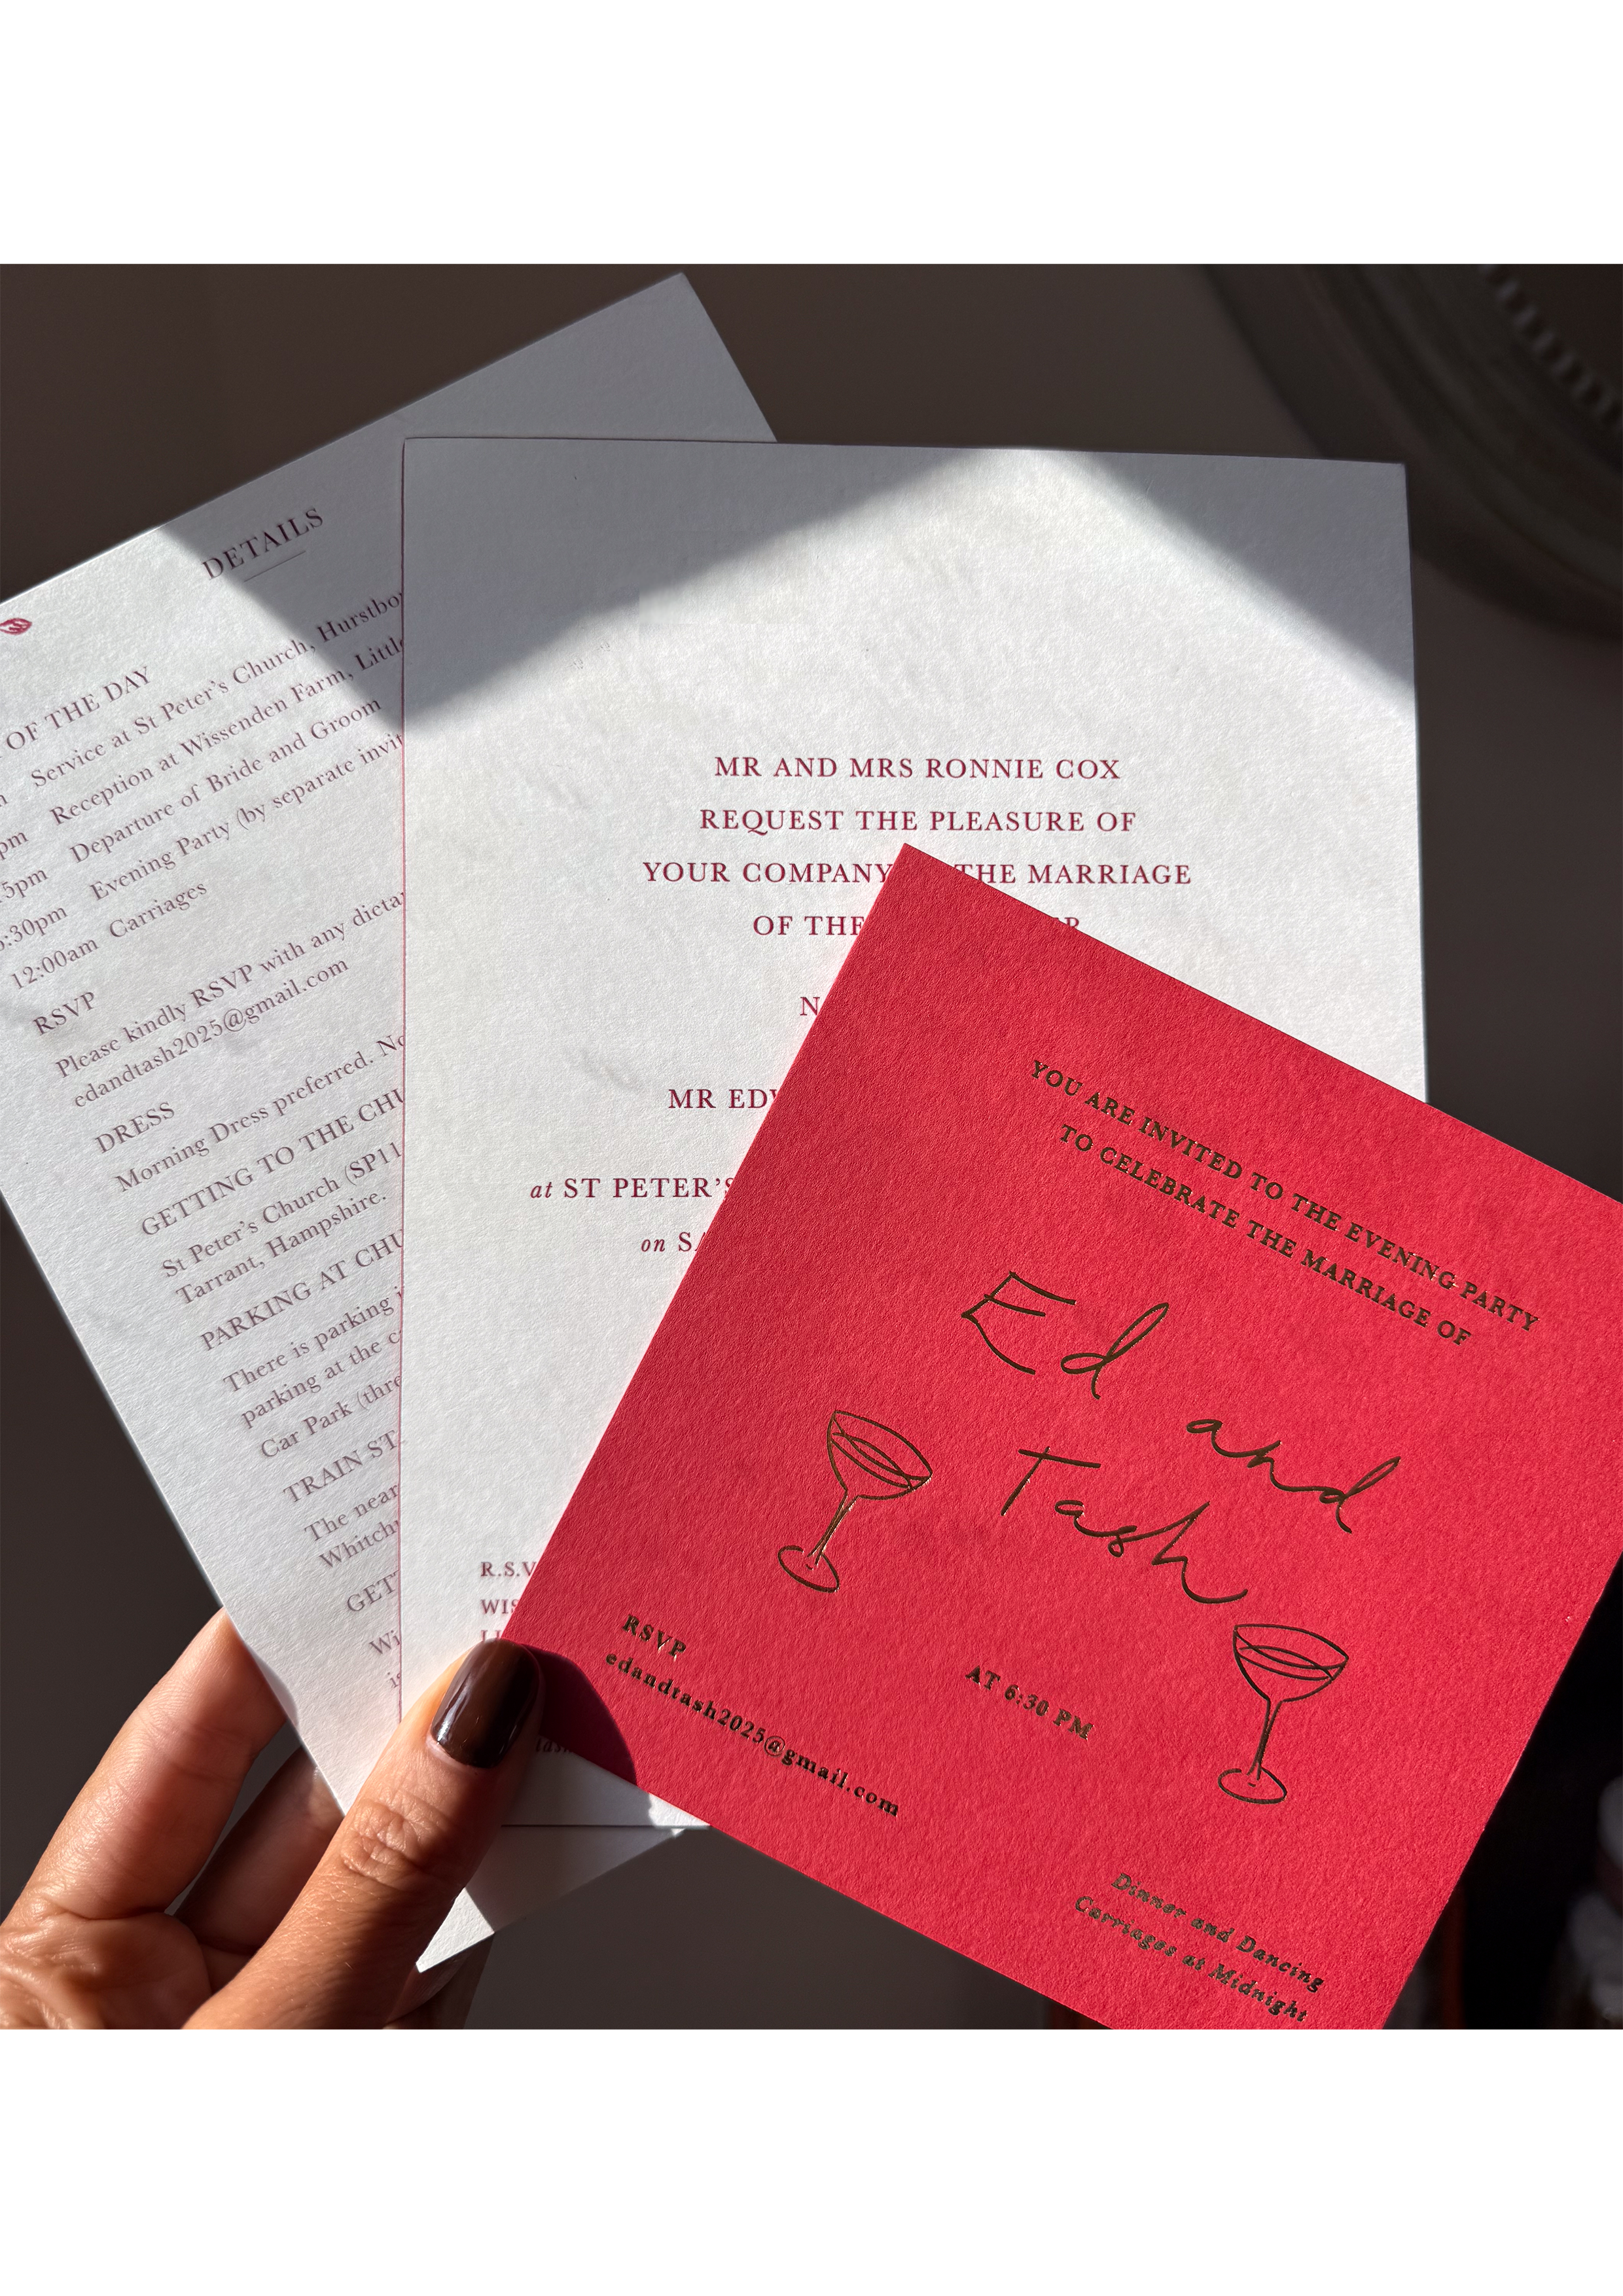 DETAILS
OF THE DAY
Service at St Peter's Church,
pm Reception at Wissenden Farm,
5pm Departure of Bride and Groom
:30pm Evening Party (by separate
12:00am Carriages
RSVP
Please kindly RSVP with any
edandtash2025@gmail.com
DRESS
Morning Dress preferred.
GETTING TO THE
St Peter's Church (SP11
Tarrant, Hampshire.
PARKING AT
There is parking
parking at the
Car Park
TRAIN
The
MR AND MRS RONNIE COX
REQUEST THE PLEASURE OF
YOUR COMPANY THE MARRIAGE
OF
MR
at ST PETER'S
on
YOU ARE INVITED TO THE EVENING PARTY
TO CELEBRATE THE MARRIAGE OF
Ed
and
Tash
AT 6:30 PM
RSVP
edandtash2025@gmail.com
Dinner and Dancing
Carriages at Midnight